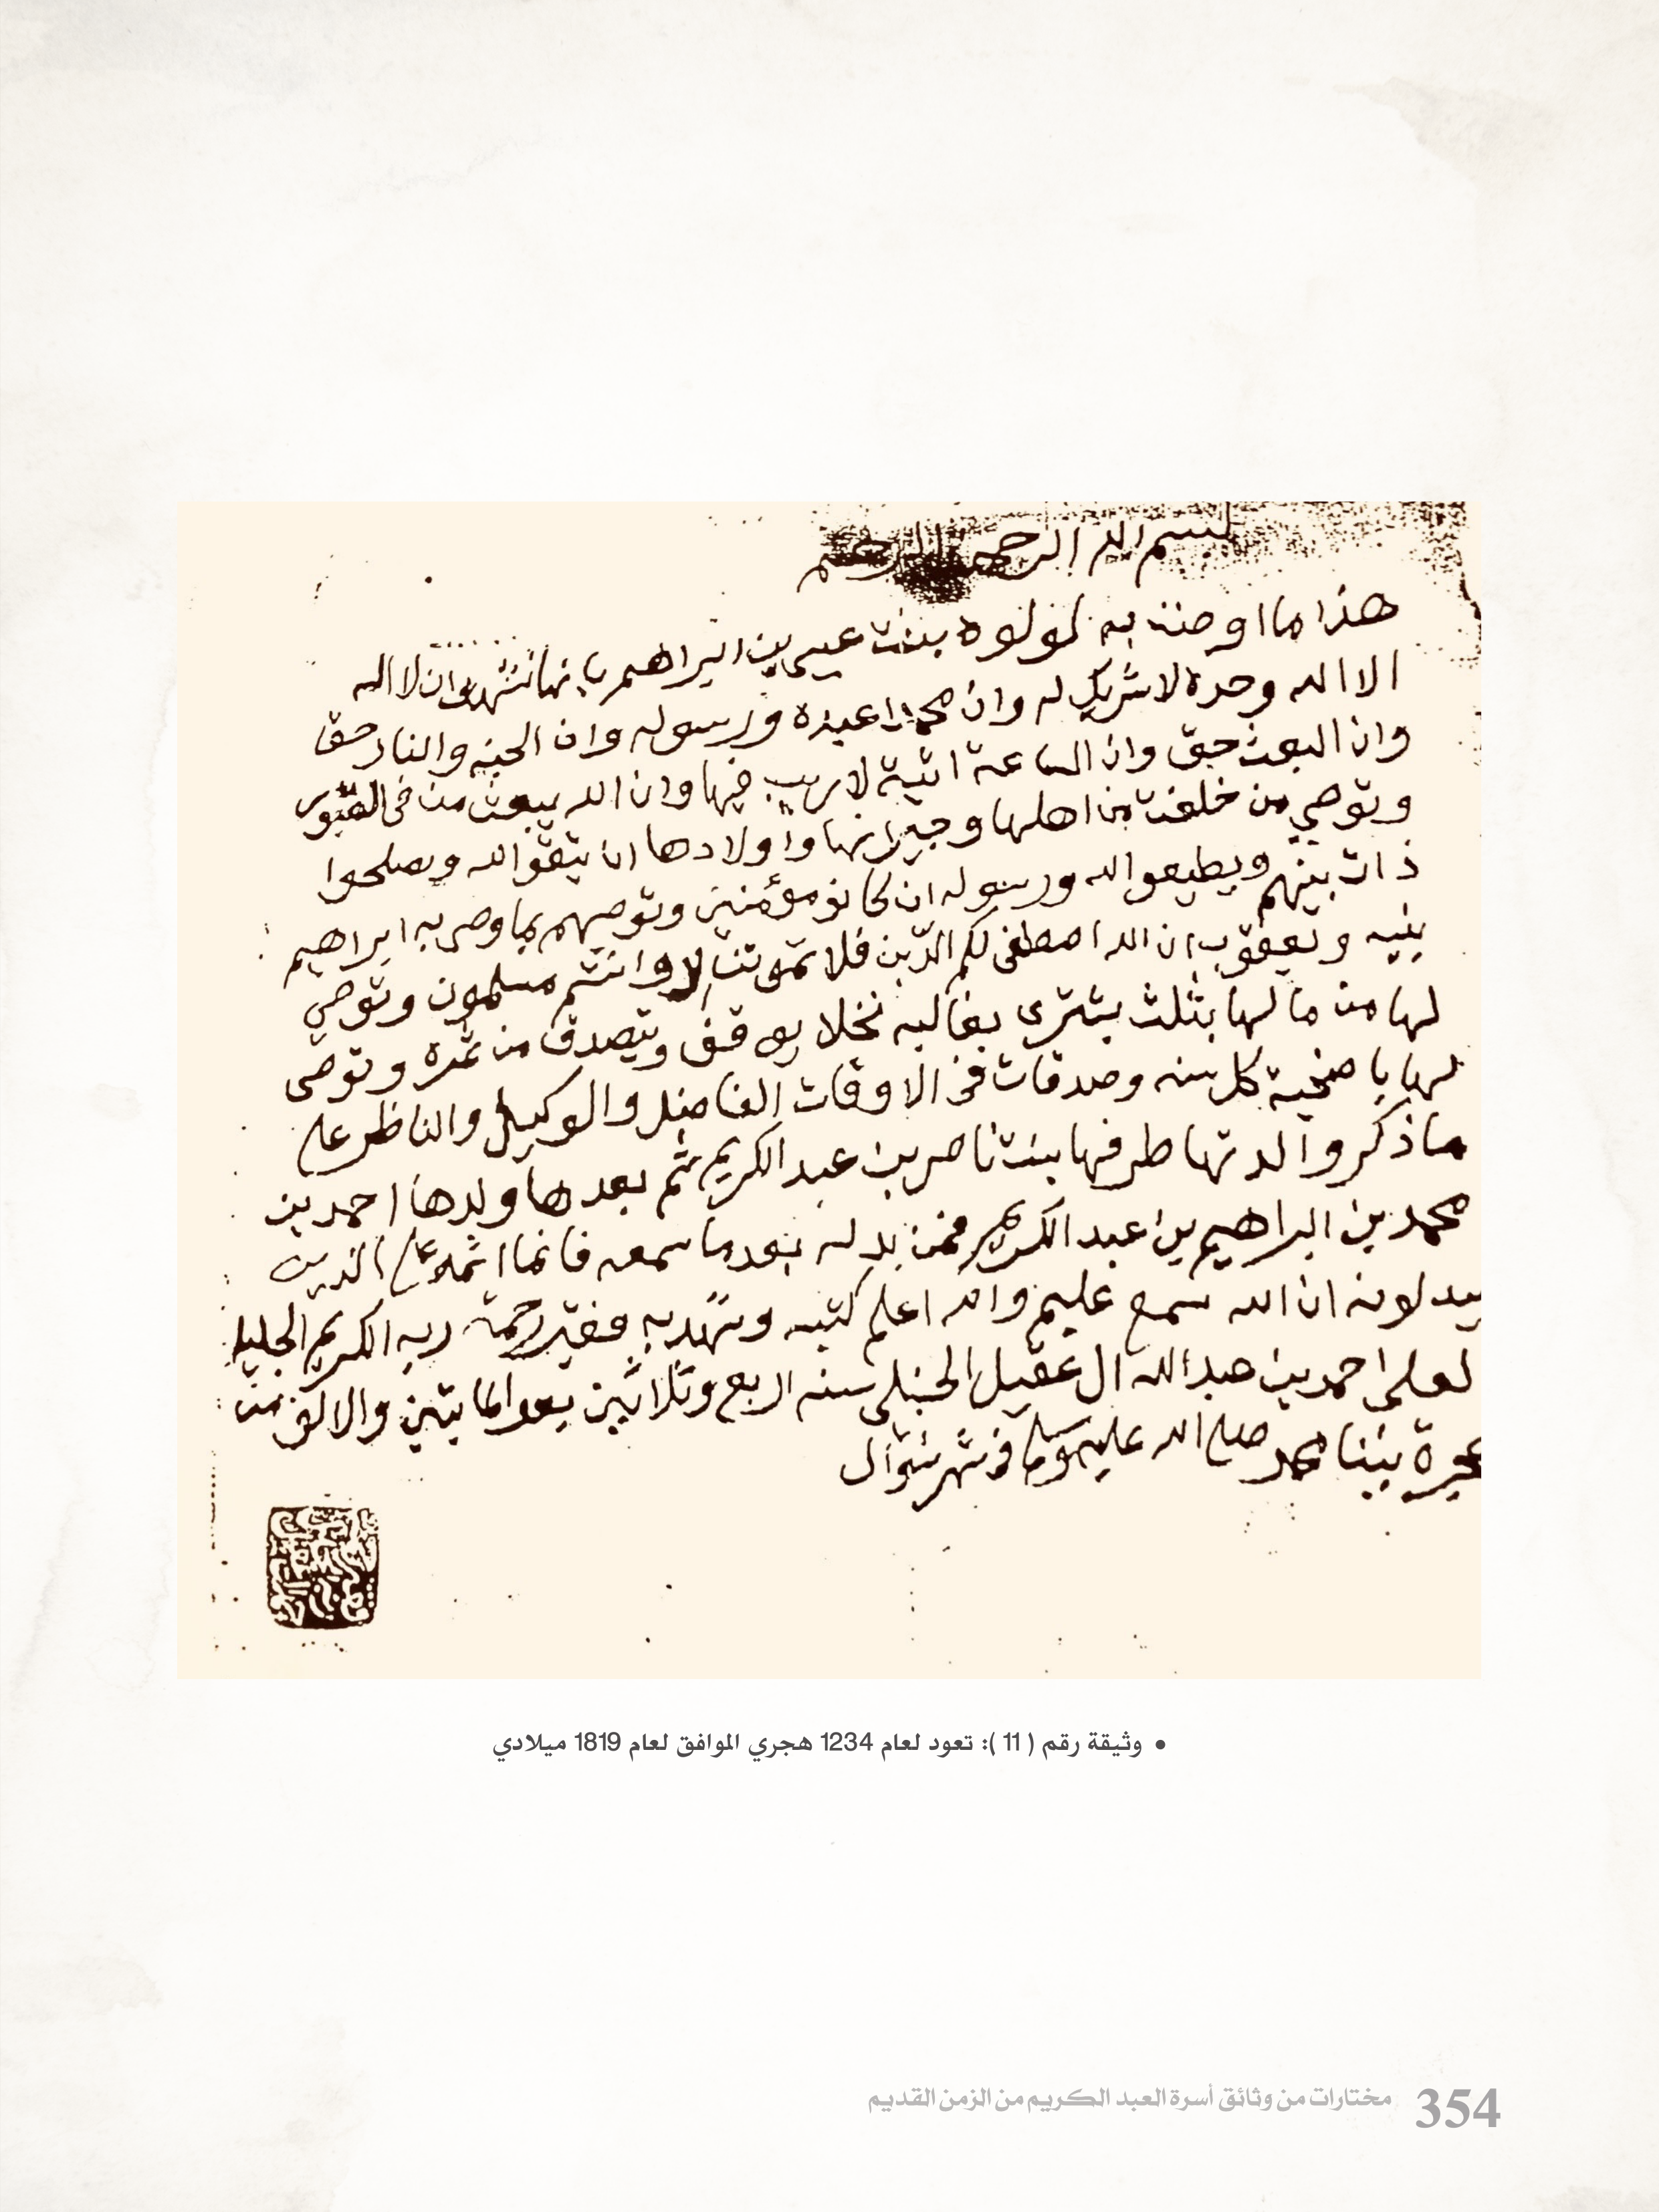 بسم الله الرحمن الرحيم
هذا ما اوصت به لولوه بنت عيسى بن ابراهيم بانها تشهد ان لا اله
الا الله وحده لا شريك له وان محمدا عبده ورسوله وان الجنه والنار حق
وان البعث حق وان الساعة اتية لا ريب فيها وان الله يبعث من فى القبور
وتوصي من خلفت من اهلها وجيرانها واولادها ان يتقو الله ويصلحوا
ذات بينهم ويطيعو الله ورسوله ان كانو مؤمنين وتوصيهم بما وصى به ابراهيم
بنيه ويعقوب ان الله اصطفى لكم الدين فلا تموتن الا وانتم مسلمون وتوصي
لها من مالها بثلث يشترى بغالبه نخلا يوقف ويتصدق من ثمره وتوصى
لها باضحية كل سنه وصدقات في الاوقات الفاضله والوكيل والناظر على
ما ذكر والدتها طرفها بنت ناصر بن عبد الكريم ثم بعدها ولدها احمد بن
محمد بن ابراهيم بن عبد الكريم فمن بدله بعدما سمعه فانما اثمه على الذين
يبدلونه ان الله سمع عليم والله اعلم كتبه وشهد به فقير رحمة ربه الكريم الجليل
لعلى احمد بن عبد الله ال عقيل الحنبلى سنه اربع وثلاثين بعد المايتين والالف من
هجرة نبينا محمد صلى الله عليه وسلم في شهر شوال
• وثيقة رقم ( 11 ): تعود لعام 1234 هجري الموافق لعام 1819 ميلادي
354 مختارات من وثائق أسرة العبد الكريم من الزمن القديم